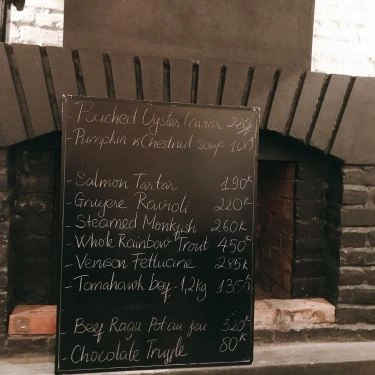 - Poached Oyster Caviar 220k
- Pumpkin & Chestnut soup 105k
- Salmon Tartar 190k
- Gruyere Ravioli 220k
- Steamed Monkfish 260k
- Whole Rainbow Trout 450k
- Venison Fettucine 285k
- Tomahawk beef - 1,2kg 135/k
- Beef Ragu Pot au feu 320k
- Chocolate Truffle 80k